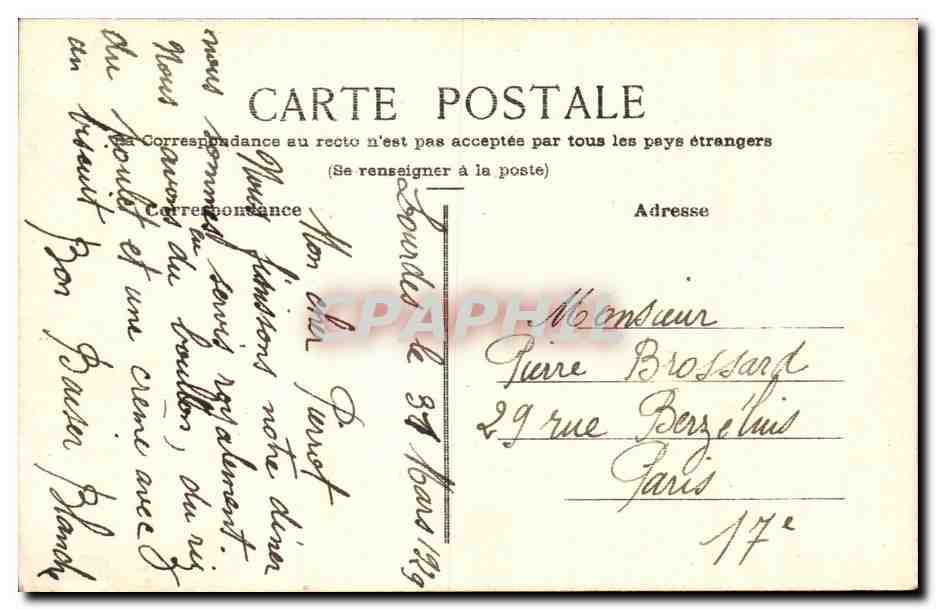 CARTE POSTALE
La Correspondance au recto n'est pas acceptée par tous les pays étrangers
(Se renseigner à la poste)
Correspondance
Adresse
Lourdes le 31 Mars 1929
Mon cher Pierrot
Nous finissons notre diner
nous sommes servis royalement.
Nous avons eu du bouillon, du riz
du poulet et une creme avec
un biscuit Bon Baiser Blanche
Monsieur
Pierre Brossard
29 rue Berzélius
Paris
17e
CPAPHIL